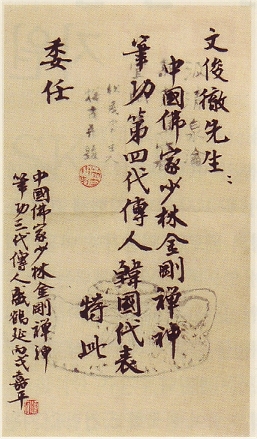 文俊徹先生：
中國佛家少林金剛禅神
筆功第四代傳人韓國代表
特此
委任
中國佛家少林金剛禅神
筆功三代傳人嚴鶴延丙戌嘉平